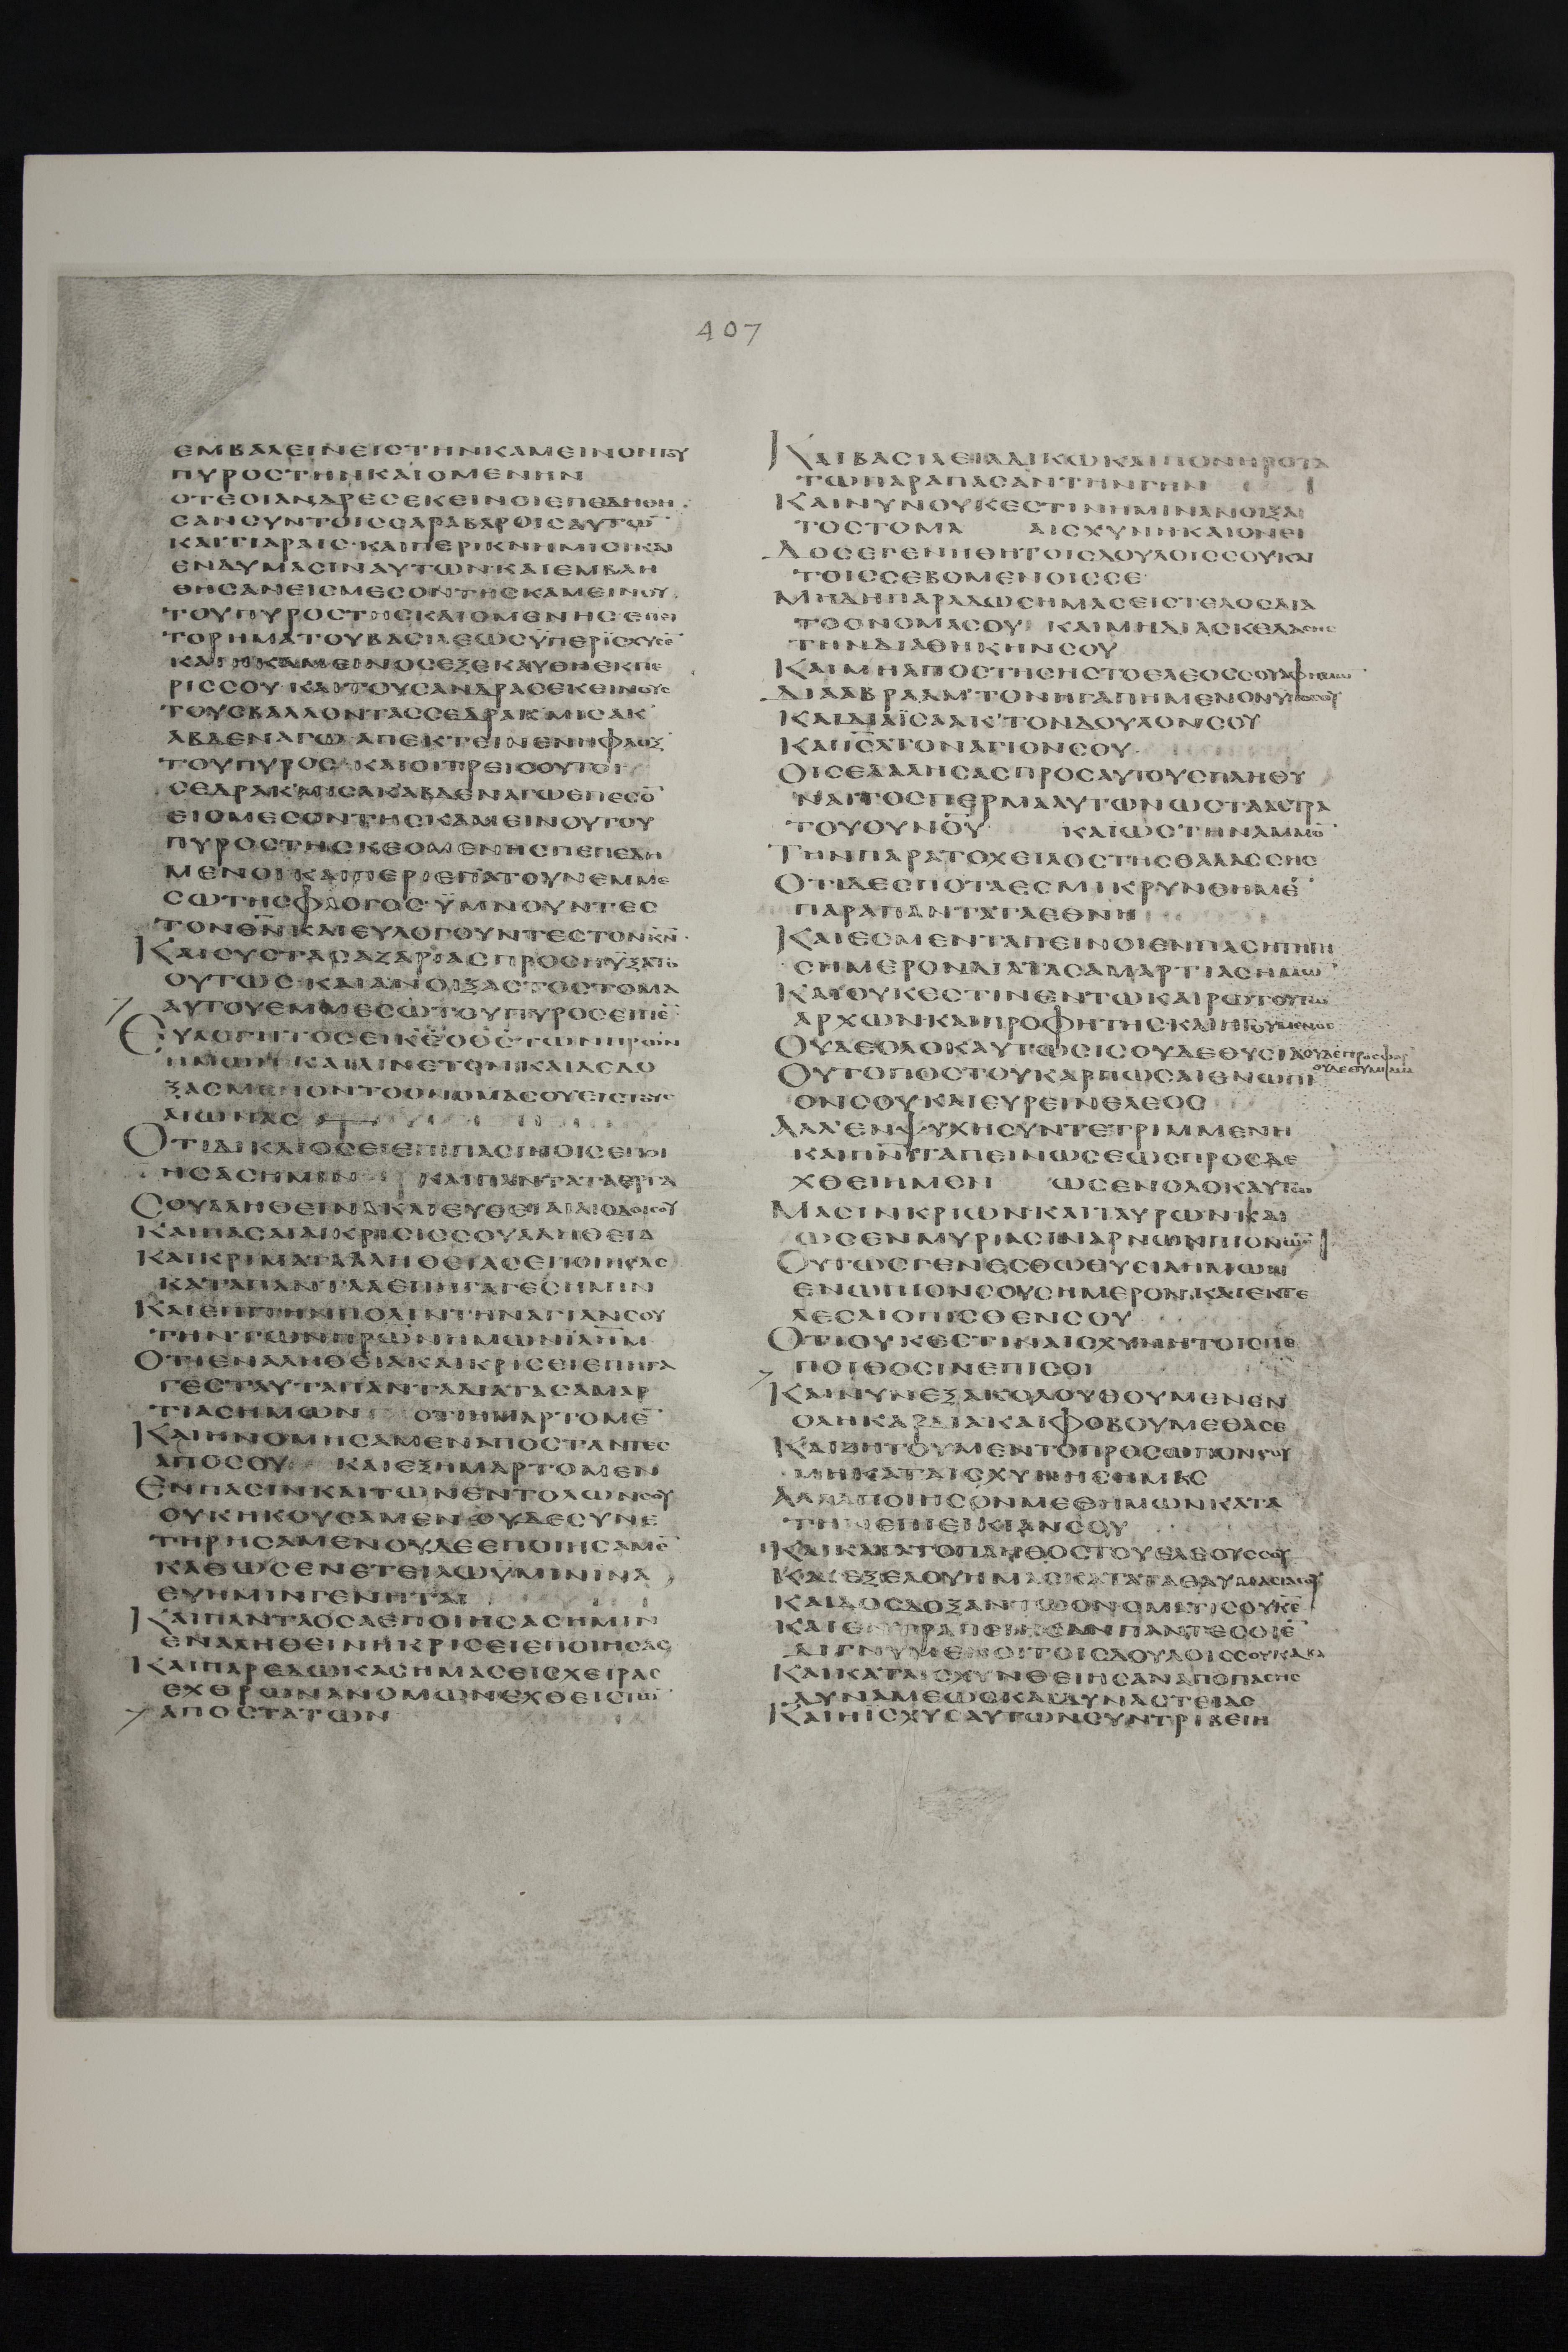 407
ΕΜΒΑΛΕΙΝΕΙΣΤΗΝΚΑΜΕΙΝΟΝΤΟΥ
ΠΥΡΟΣΤΗΝΚΑΙΟΜΕΝΗΝ
ΟΤΕΟΙΑΝΔΡΕΣΕΚΕΙΝΟΙΕΠΕΔΗΘΗ
ΣΑΝΣΥΝΤΟΙΣΣΑΡΑΒΑΡΟΙΣΑΥΤΩ̄
ΚΑΙΤΙΑΡΑΙΣ·ΚΑΙΠΕΡΙΚΝΗΜΙΣΙΚΑΙ
ΕΝΔΥΜΑΣΙΝΑΥΤΩΝΚΑΙΕΜΒΛΗ
ΘΗΣΑΝΕΙΣΜΕΣΟΝΤΗΣΚΑΜΕΙΝΟΥ
ΤΟΥΠΥΡΟΣΤΗΣΚΑΙΟΜΕΝΗΣΕΠΕΙ
ΤΟΡΗΜΑΤΟΥΒΑΣΙΛΕΩΣΫΠΕΡΪΣΧΥΣΕ̄
ΚΑΙΗΚΑΜΕΙΝΟΣΕΞΕΚΑΥΘΗΕΚΠΕ
ΡΙΣΣΟΥ·ΚΑΙΤΟΥΣΑΝΔΡΑΣΕΚΕΙΝΟΥΣ
ΤΟΥΣΒΑΛΛΟΝΤΑΣΣΕΔΡΑΚ'ΜΙΣΑΚ'
ΑΒΔΕΝΑΓΩΑΠΕΚΤΕΙΝΕΝΗΦΛΟΞ
ΤΟΥΠΥΡΟΣ·ΚΑΙΟΙΤΡΕΙΣΟΥΤΟΙ
ΣΕΔΡΑΚ'ΜΙΣΑΚ'ΑΒΔΕΝΑΓΩΕΠΕΣΟ̄
ΕΙΣΜΕΣΟΝΤΗΣΚΑΜΕΙΝΟΥΤΟΥ
ΠΥΡΟΣΤΗΣΚΕΟΜΕΝΗΣΠΕΠΕΔΗ
ΜΕΝΟΙΚΑΙΠΕΡΙΕΠΑΤΟΥΝΕΜΜΕ
ΣΩΤΗΣΦΛΟΓΟΣ·ΫΜΝΟΥΝΤΕΣ
ΤΟΝΘ̄Ν̄ΚΑΙΕΥΛΟΓΟΥΝΤΕΣΤΟΝΚ̄Ν̄·
ΚΑΙΣΥΣΤΑΣΑΖΑΡΙΑΣΠΡΟΣΗΥΞΑΤΟ
ΟΥΤΩΣ·ΚΑΙΑΝΟΙΞΑΣΤΟΣΤΟΜΑ
ΑΥΤΟΥΕΜΜΕΣΩΤΟΥΠΥΡΟΣΕΙΠΕ̄
ΕΥΛΟΓΗΤΟΣΕΙΚ̄Ε̄ΟΘ̄Σ̄ΤΩΝΠΡ̄ΩΝ
ΗΜΩΝΚΑΙΑΙΝΕΤΟΝΚΑΙΔΕΔΟ
ΞΑΣΜΕΝΟΝΤΟΟΝΟΜΑΣΟΥΕΙΣΤΟΥΣ
ΑΙΩΝΑΣ
ΟΤΙΔΙΚΑΙΟΣΕΙΕΠΙΠΑΣΙΝΟΙΣΕΠΟΙ
ΗΣΑΣΗΜΙΝ ΚΑΙΠΑΝΤΑΤΑΕΡΓΑ
ΣΟΥΑΛΗΘΕΙΝΑΚΑΙΕΥΘΕΙΑΙΑΙΟΔΟΙΣΟΥ
ΚΑΙΠΑΣΑΙΑΙΚΡΙΣΙΣΣΟΥΑΛΗΘΕΙΑ
ΚΑΙΚΡΙΜΑΤΑΑΛΗΘΕΙΑΣΕΠΟΙΗΣΑΣ
ΚΑΤΑΠΑΝΤΑΑΕΠΗΓΑΓΕΣΗΜΙΝ
ΚΑΙΕΠΙΤΗΝΠΟΛΙΝΤΗΝΑΓΙΑΝΣΟΥ
ΤΗΝΤΩΝΠΡ̄ΩΝΗΜΩΝῙΛ̄Η̄Μ̄
ΟΤΙΕΝΑΛΗΘΕΙΑΚΑΙΚΡΙΣΕΙΕΠΗΓΑ
ΓΕΣΤΑΥΤΑΠΑΝΤΑΔΙΑΤΑΣΑΜΑΡ
ΤΙΑΣΗΜΩΝ ΟΤΙΗΜΑΡΤΟΜΕ̄
ΚΑΙΗΝΟΜΗΣΑΜΕΝΑΠΟΣΤΑΝΤΕΣ
ΑΠΟΣΟΥ ΚΑΙΕΞΗΜΑΡΤΟΜΕΝ
ΕΝΠΑΣΙΝΚΑΙΤΩΝΕΝΤΟΛΩΝΣΟΥ
ΟΥΚΗΚΟΥΣΑΜΕΝΟΥΔΕΣΥΝΕ
ΤΗΡΗΣΑΜΕΝΟΥΔΕΕΠΟΙΗΣΑΜΕ̄
ΚΑΘΩΣΕΝΕΤΕΙΛΩΫΜΙΝΙΝΑ
ΕΥΗΜΙΝΓΕΝΗΤΑΙ
ΚΑΙΠΑΝΤΑΟΣΑΕΠΟΙΗΣΑΣΗΜΙΝ
ΕΝΑΛΗΘΕΙΝΗΚΡΙΣΕΙΕΠΟΙΗΣΑΣ
ΚΑΙΠΑΡΕΔΩΚΑΣΗΜΑΣΕΙΣΧΕΙΡΑΣ
ΕΧΘΡΩΝΑΝΟΜΩΝΕΧΘΕΙΣΤΩ̄
ΑΠΟΣΤΑΤΩΝ
ΚΑΙΒΑΣΙΛΕΙΑΔΙΚΩΚΑΙΠΟΝΗΡΟΤΑ
ΤΩΠΑΡΑΠΑΣΑΝΤΗΝΓΗΝ
ΚΑΙΝΥΝΟΥΚΕΣΤΙΝΗΜΙΝΑΝΟΙΞΑΙ
ΤΟΣΤΟΜΑ ΑΙΣΧΥΝΗΚΑΙΟΝΕΙ
ΔΟΣΕΓΕΝΗΘΗΤΟΙΣΔΟΥΛΟΙΣΣΟΥΚΑΙ
ΤΟΙΣΣΕΒΟΜΕΝΟΙΣΣΕ
ΜΗΔΗΠΑΡΑΔΩΣΗΜΑΣΕΙΣΤΕΛΟΣΔΙΑ
ΤΟΟΝΟΜΑΣΟΥ ΚΑΙΜΗΔΙΑΣΚΕΔΑΣΗΣ
ΤΗΝΔΙΑΘΗΚΗΝΣΟΥ
ΚΑΙΜΗΑΠΟΣΤΗΣΗΣΤΟΕΛΕΟΣΣΟΥΑΦΗΜΩΝ
ΔΙΑΑΒΡΑΑΜ'ΤΟΝΗΓΑΠΗΜΕΝΟΝΫΠΟΣΟΥ
ΚΑΙΔΙΑΪΣΑΑΚ'ΤΟΝΔΟΥΛΟΝΣΟΥ
ΚΑΙῙΣ̄Λ̄ΤΟΝΑΓΙΟΝΣΟΥ
ΟΙΣΕΛΑΛΗΣΑΣΠΡΟΣΑΥΤΟΥΣΠΛΗΘΥ
ΝΑΙΤΟΣΠΕΡΜΑΑΥΤΩΝΩΣΤΑΑΣΤΡΑ
ΤΟΥΟΥΝ̄ΟΥ ΚΑΙΩΣΤΗΝΑΜΜΟ̄
ΤΗΝΠΑΡΑΤΟΧΕΙΛΟΣΤΗΣΘΑΛΑΣΣΗΣ
ΟΤΙΔΕΣΠΟΤΑΕΣΜΙΚΡΥΝΘΗΜΕ̄
ΠΑΡΑΠΑΝΤΑΤΑΕΘΝΗ
ΚΑΙΕΣΜΕΝΤΑΠΕΙΝΟΙΕΝΠΑΣΗΤΗΓΗ
ΣΗΜΕΡΟΝΔΙΑΤΑΣΑΜΑΡΤΙΑΣΗΜΩ̄
ΚΑΙΟΥΚΕΣΤΙΝΕΝΤΩΚΑΙΡΩΤΟΥΤΩ
ΑΡΧΩΝΚΑΙΠΡΟΦΗΤΗΣΚΑΙΗΓΟΥΜΕΝΟΣ
ΟΥΔΕΟΛΟΚΑΥΤΩΣΙΣΟΥΔΕΘΥΣΙΑΟΥΔΕΠΡΟΣΦΟΡ
ΟΥΔΕΘΥΜΙΑΜΑ
ΟΥΤΟΠΟΣΤΟΥΚΑΡΠΩΣΑΙΕΝΩΠΙ
ΟΝΣΟΥΚΑΙΕΥΡΕΙΝΕΛΕΟΣ
ΑΛΛ'ΕΝΨΥΧΗΣΥΝΤΕΤΡΙΜΜΕΝΗ
ΚΑΙΠ̄Ν̄ῙΤΑΠΕΙΝΩΣΕΩΣΠΡΟΣΔΕ
ΧΘΕΙΗΜΕΝ ΩΣΕΝΟΛΟΚΑΥΤΩ
ΜΑΣΙΝΚΡΙΩΝΚΑΙΤΑΥΡΩΝΚΑΙ
ΩΣΕΝΜΥΡΙΑΣΙΝΑΡΝΩΝΠΙΟΝΩΝ
ΟΥΤΩΣΓΕΝΕΣΘΩΘΥΣΙΑΗΜΩΝ
ΕΝΩΠΙΟΝΣΟΥΣΗΜΕΡΟΝΚΑΙΕΚΤΕ
ΛΕΣΑΙΟΠΙΣΘΕΝΣΟΥ
ΟΤΙΟΥΚΕΣΤΙΝΑΙΣΧΥΝΗΤΟΙΣΠΕ
ΠΟΙΘΟΣΙΝΕΠΙΣΟΙ
ΚΑΙΝΥΝΕΞΑΚΟΛΟΥΘΟΥΜΕΝΕΝ
ΟΛΗΚΑΡΔΙΑΚΑΙΦΟΒΟΥΜΕΘΑΣΕ
ΚΑΙΖΗΤΟΥΜΕΝΤΟΠΡΟΣΩΠΟΝΣΟΥ
ΜΗΚΑΤΑΙΣΧΥΝΗΣΗΜΑΣ
ΑΛΛΑΠΟΙΗΣΟΝΜΕΘΗΜΩΝΚΑΤΑ
ΤΗΝΕΠΙΕΙΚΙΑΝΣΟΥ
ΚΑΙΚΑΤΑΤΟΠΛΗΘΟΣΤΟΥΕΛΕΟΥΣΣΟΥ
ΚΑΙΕΞΕΛΟΥΗΜΑΣΚΑΤΑΤΑΘΑΥΜΑΣΙΑΣΟΥ
ΚΑΙΔΟΣΔΟΞΑΝΤΩΟΝΟΜΑΤΙΣΟΥΚ̄Ε̄
ΚΑΙΕΝΤΡΑΠΕΙΗΣΑΝΠΑΝΤΕΣΟΙΕ̄
ΔΙΓΝΥΜΕΝΟΙΤΟΙΣΔΟΥΛΟΙΣΣΟΥΚΑΚΑ
ΚΑΙΚΑΤΑΙΣΧΥΝΘΕΙΗΣΑΝΑΠΟΠΑΣΗΣ
ΔΥΝΑΜΕΩΣΚΑΙΔΥΝΑΣΤΕΙΑΣ
ΚΑΙΗΙΣΧΥΣΑΥΤΩΝΣΥΝΤΡΙΒΕΙΗ